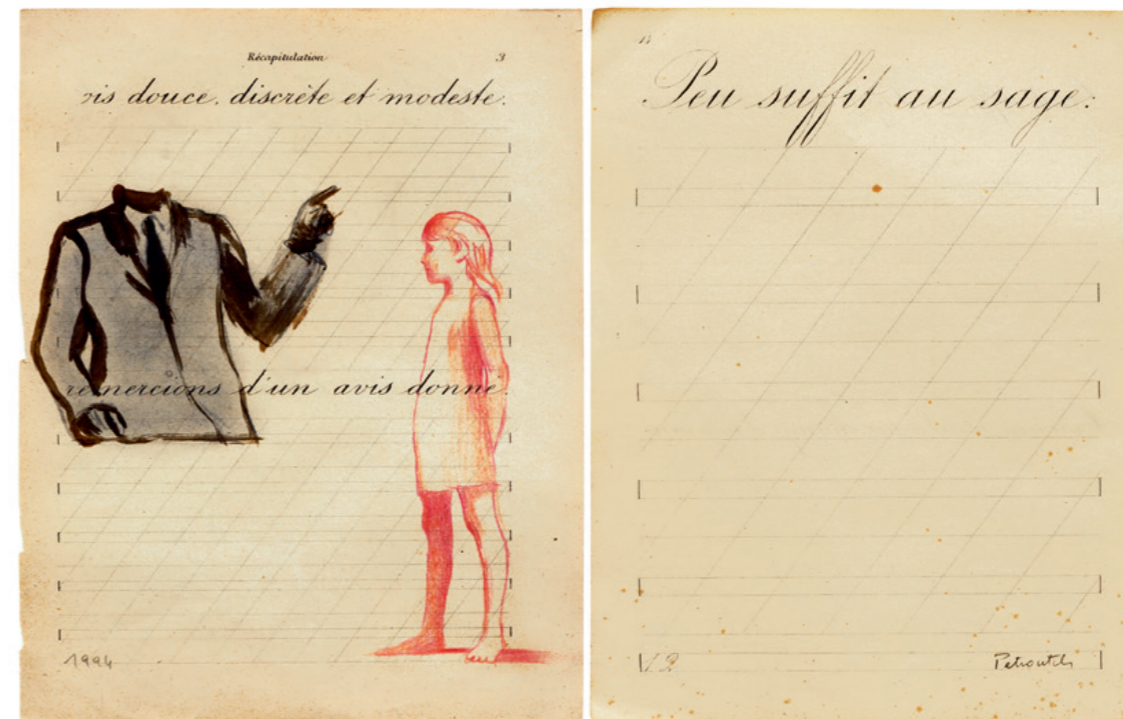 Récapitulation 3
ois douce. discrète et modeste.
remercions d'un avis donné.
1994
Peu suffit au sage.
12